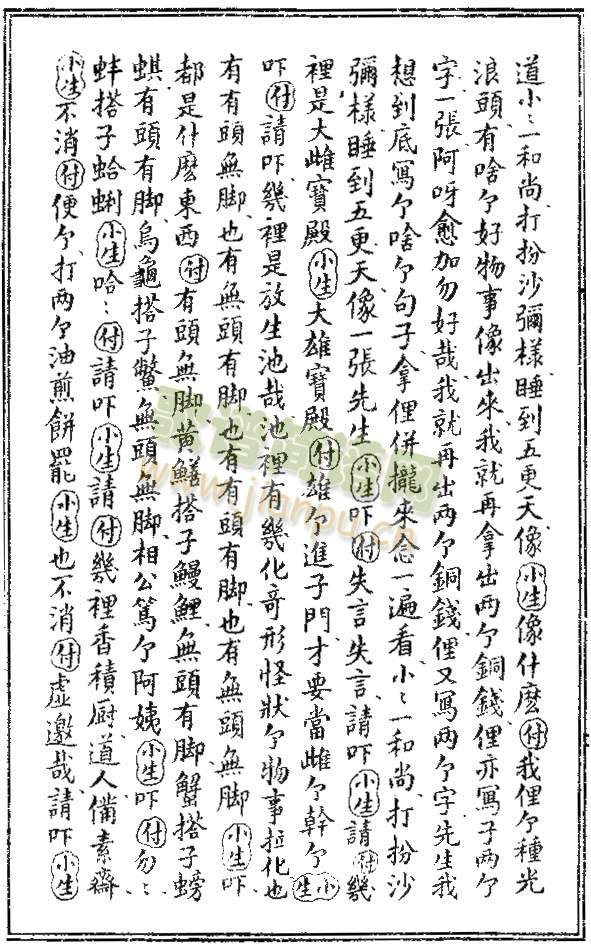 道小〻一和尚打扮沙彌樣睡到五更天像小生像什麽付我俚个種光
浪頭有啥个好物事像出來我就再拿出两个銅錢俚亦寫子两个
字一張阿呀愈加勿好哉我就再出两个銅錢俚又寫两个字先生我
想到底寫个啥个句子拿俚併攏來念一遍看小〻一和尚打扮沙
彌樣睡到五更天像一張先生小生吓付失言失言請吓小生請付幾
裡是大雌寶殿小生大雄寶殿付雄个進子門才要當雌个幹个小生
吓付請吓幾裡是放生池哉池裡有幾化奇形怪狀个物事拉化也
有有頭無脚也有無頭有脚也有有頭有脚也有無頭無脚小生吓
都是什麽東西付有頭無脚黄鱔搭子鰻鯉無頭有脚蟹搭子螃
蜞有頭有脚烏龜搭子鱉無頭無脚相公篤个阿姨小生吓付勿〻
蚌搭子蛤蜊小生哈〻付請吓小生請付幾裡香積厨道人備素齋
小生不消付便个打两个油煎餅罷小生也不消付虚邀哉請吓小生
歌譜簡譜網
www.jianpu.cn